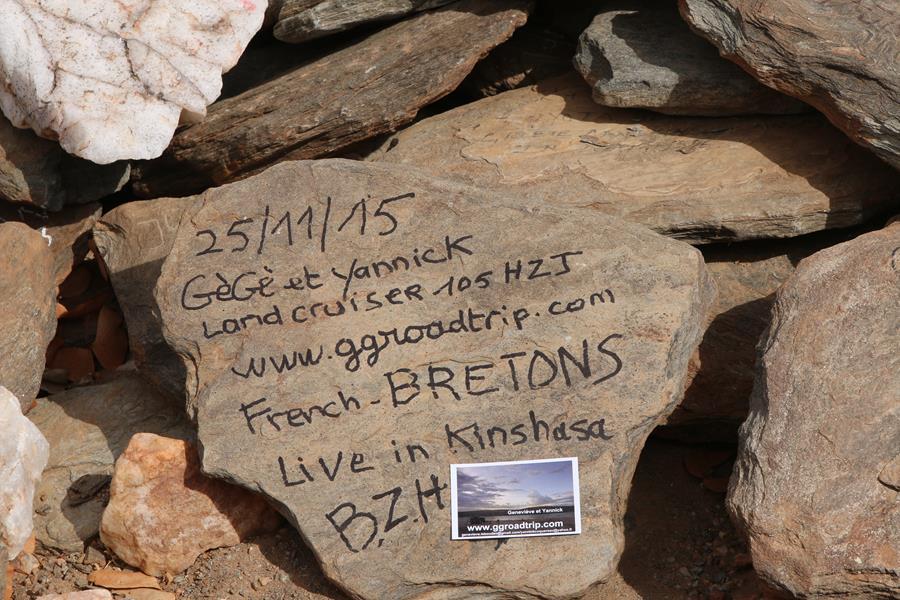 25/11/15
GèGè et Yannick
Land cruiser 105 HZJ
www.ggroadtrip.com
French - BRETONS
Live in Kinshasa
B.Z.H
Geneviève et Yannick
www.ggroadtrip.com